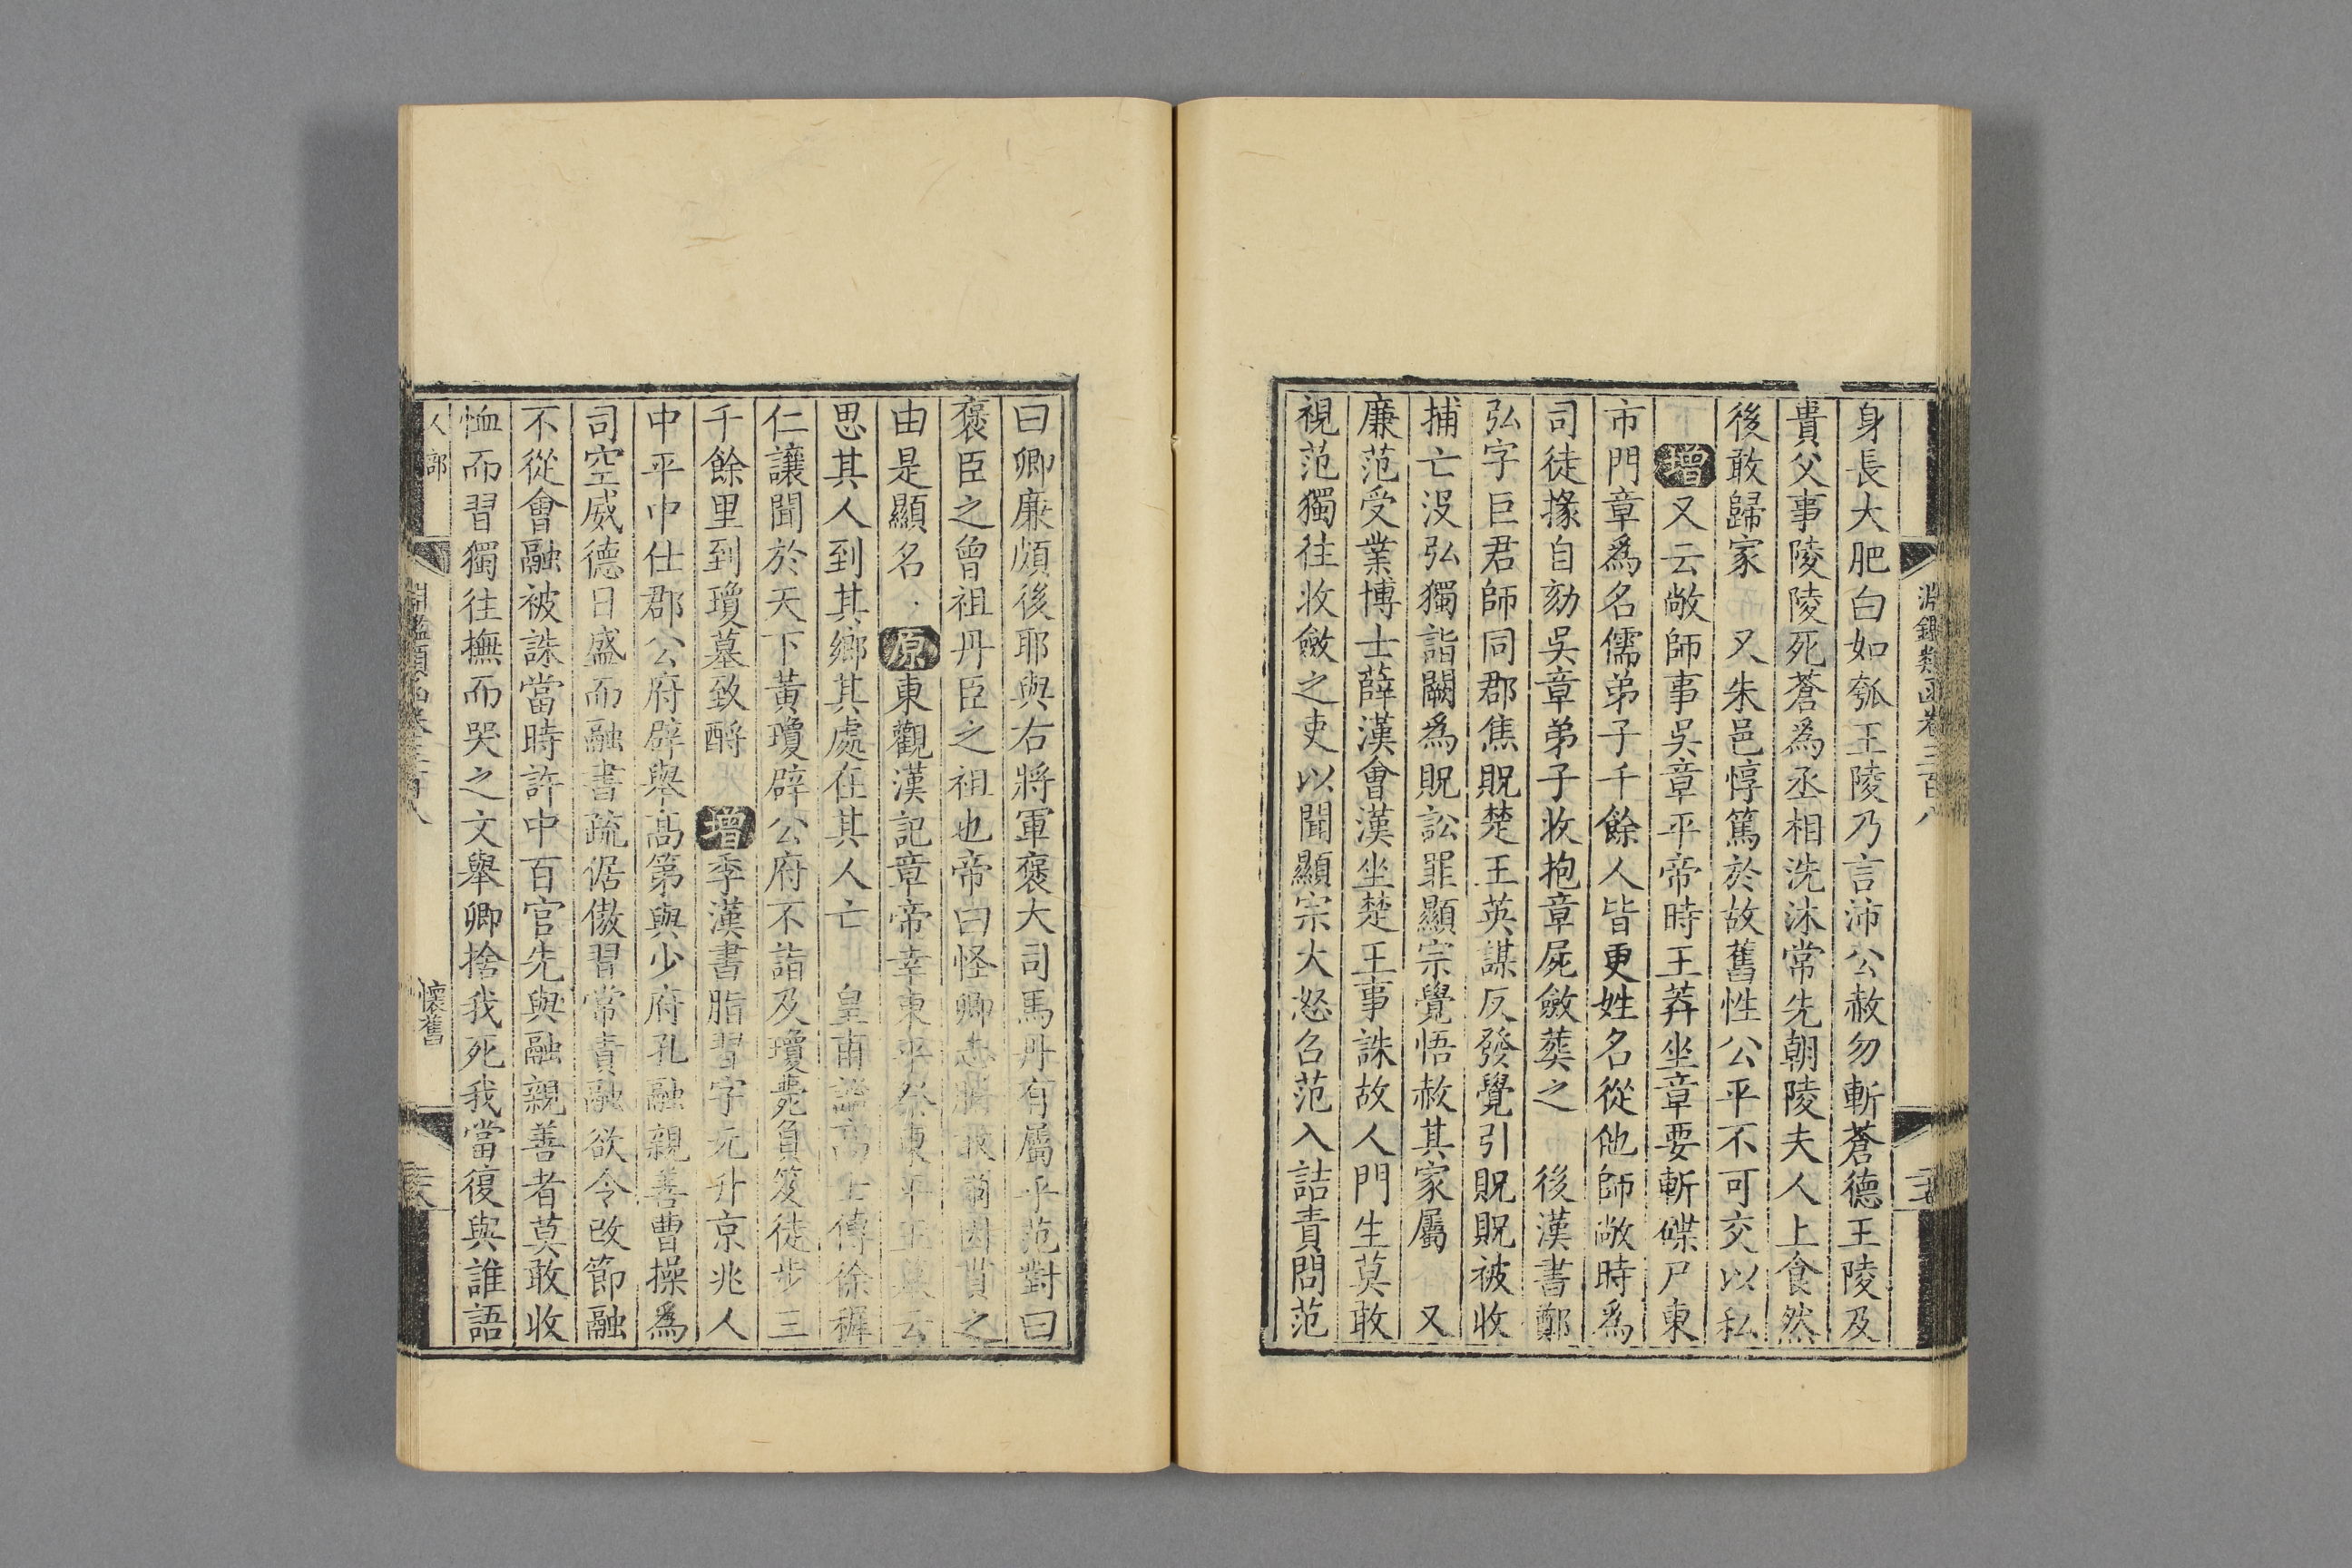 淵鑑類函卷三百八
身長大肥白如瓠王陵乃言沛公赦勿斬蒼德王陵及
貴父事陵陵死蒼爲丞相洗沐常先朝陵夫人上食然
後敢歸家 又朱邑惇篤於故舊性公平不可交以私
增又云敞師事吳章平帝時王莽坐章要斬磔尸東
市門章爲名儒弟子千餘人皆更姓名從他師敞時爲
司徒掾自劾吳章弟子收抱章屍斂葬之 後漢書鄭
弘字巨君師同郡焦貺楚王英謀反發覺引貺貺被收
捕亡沒弘獨詣闕爲貺訟罪顯宗覺悟赦其家屬 又
廉范受業博士薛漢會漢坐楚王事誅故人門生莫敢
視范獨往收斂之吏以聞顯宗大怒召范入詰責問范
曰卿廉頗後耶與右將軍褒大司馬丹有屬乎范對曰
褒臣之曾祖丹臣之祖也帝曰怪卿志膽敢爾因貰之
由是顯名 原東觀漢記章帝幸東平祭東平王墓云
思其人到其鄉其處在其人亡 皇甫謐高士傳徐穉
仁讓聞於天下黃瓊辟公府不詣及瓊薨負笈徒步三
千餘里到瓊墓致酹 增季漢書脂習字元升京兆人
中平中仕郡公府辟舉高第與少府孔融親善曹操爲
司空威德日盛而融書疏倨傲習常責融欲令改節融
不從會融被誅當時許中百官先與融親善者莫敢收
恤而習獨往撫而哭之文舉卿捨我死我當復與誰語
人部
淵鑑類函卷三百八
懷舊